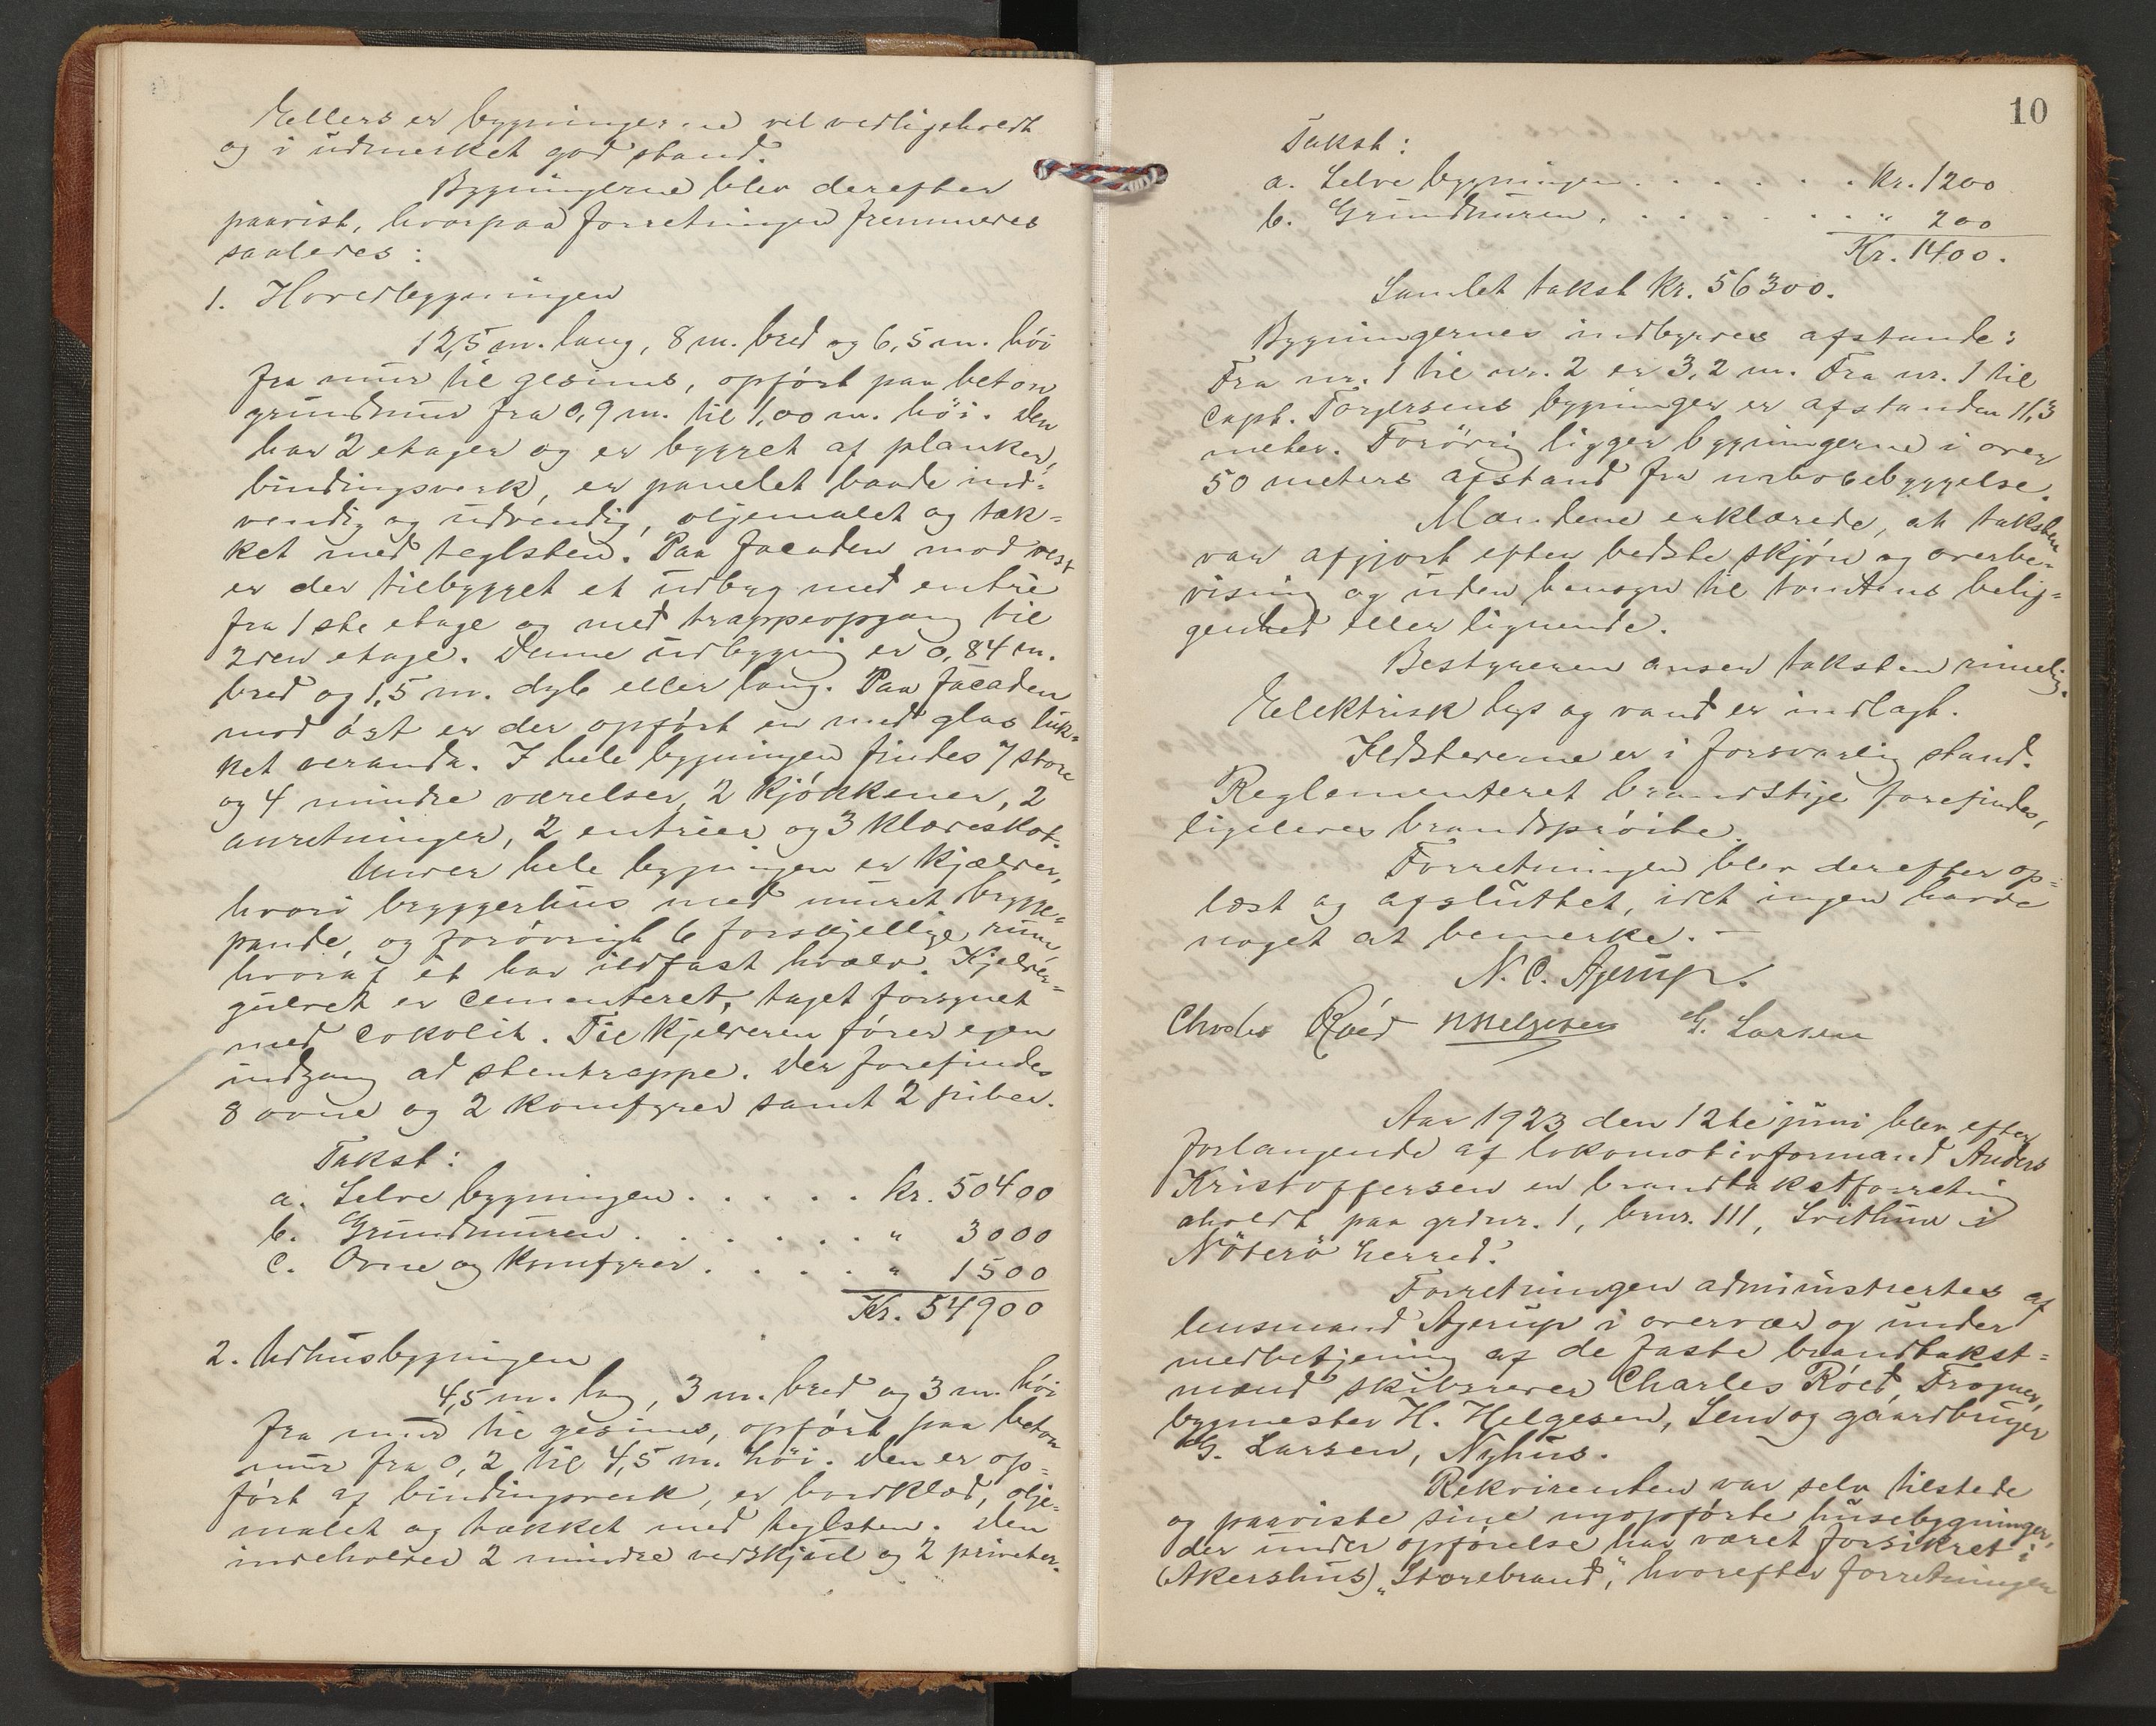 Ellers er bygningerne vel vedligeholdt
og i udmerket god stand.
Bygningerne blev derefter
paavist, hvorpaa forretningen fremmedes
saaledes:
1. Hovedbygningen
12,5 m. lang, 8 m. bred og 6,5 m. høi
fra mur til gesims, opført paa beton
grundmur fra 0,9 m. til 1,00 m. høi. Den
har 2 etager og er bygget af planker,
bindingsverk, er panelet baade ind-
vendig og udvendig, oljemalet og tæk-
ket med teglsten. Paa facaden mod vest
er der tilbygget et udbyg med entré
fra 1ste etage og med trappeopgang til
2den etage. Denne udbygning er 0,84 m.
bred og 1,5 m. dyb eller lang. Paa facaden
mod øst er der opført en med glas luk-
ket veranda. I hele bygningen findes 7 store
og 4 mindre værelser, 2 kjøkkener, 2
anretninger, 2 entréer og 3 klædeskot.
Under hele bygningen er kjælder,
hvori bryggerhus med muret brygge-
pande, og forøvrigt 6 forskjellige rum
hvoraf et har ildfast hvælv. Kjelder-
gulvet er cementeret, taget forsynet
med cokolit. Til kjelderen fører egen
indgang ad stentrappe. Der forefindes
8 ovne og 2 komfyrer samt 2 piber.
Takst:
a. Selve bygningen . . . . . kr. 50400
b. Grundmuren . . . . . . " 3000
c. Ovne og komfyrer . . . . " 1500
Kr. 54900
2. Udhusbygningen
4,5 m. lang, 3 m. bred og 3 m. høi
fra mur til gesims, opført paa beton
mur fra 0,2 til 4,5 m. høi. Den er op-
ført af bindingsverk, er bordklæd, olje-
malet og tækket med teglsten. Den
indeholder 2 mindre vedskjul og 2 priveter.
10
Takst:
a. Selve bygningen . . . . . . kr. 1200
b. Grundmuren . . . . . . . " 200
Kr. 1400.
Samlet takst kr. 56300.
Bygningernes indbyrdes afstande:
Fra nr. 1 til nr. 2 er 3,2 m. Fra nr. 1 til
Capt. Torgersens bygninger er afstanden 11,3
meter. Forøvrig ligger bygningerne i over
50 meters afstand fra nabobebyggelse.
Mændene erklærede, at taksten
var afgjort efter bedste skjøn og overbe-
visning og uden hensyn til tomtens belig-
genhed eller lignende.
Bestyreren anser taksten rimelig.
Elektrisk lys og vand er indlagt.
Ildstederne er i forsvarlig stand.
Reglementeret brandstige forefindes,
ligeledes brandsprøite.
Forretningen blev derefter op-
læst og afsluttet, idet ingen havde
noget at bemerke. —
N. C. Agerup.
Charles Röed HHelgesen G. Larsen
Aar 1923 den 12te juni blev efter
forlangende af lokomotivformand Anders
Kristoffersen en brandtakstforretning
aholdt paa grdnr. 1, brnr. 111, Solthun i
Nøterø herred.
Forretningen administrertes af
lensmand Agerup i overvær og under
medbetjening af de faste brandtakst-
mænd skibsreder Charles Röed, Trogner,
bygmester H. Helgesen, Lem og gaardbruger
G. Larsen, Nyhus.
Rekvirenten var selv tilstede
og paaviste sine nyopførte husebygninger,
der under opførelse har været forsikret i
(Akershus) "Storebrand," hvorefter forretningen